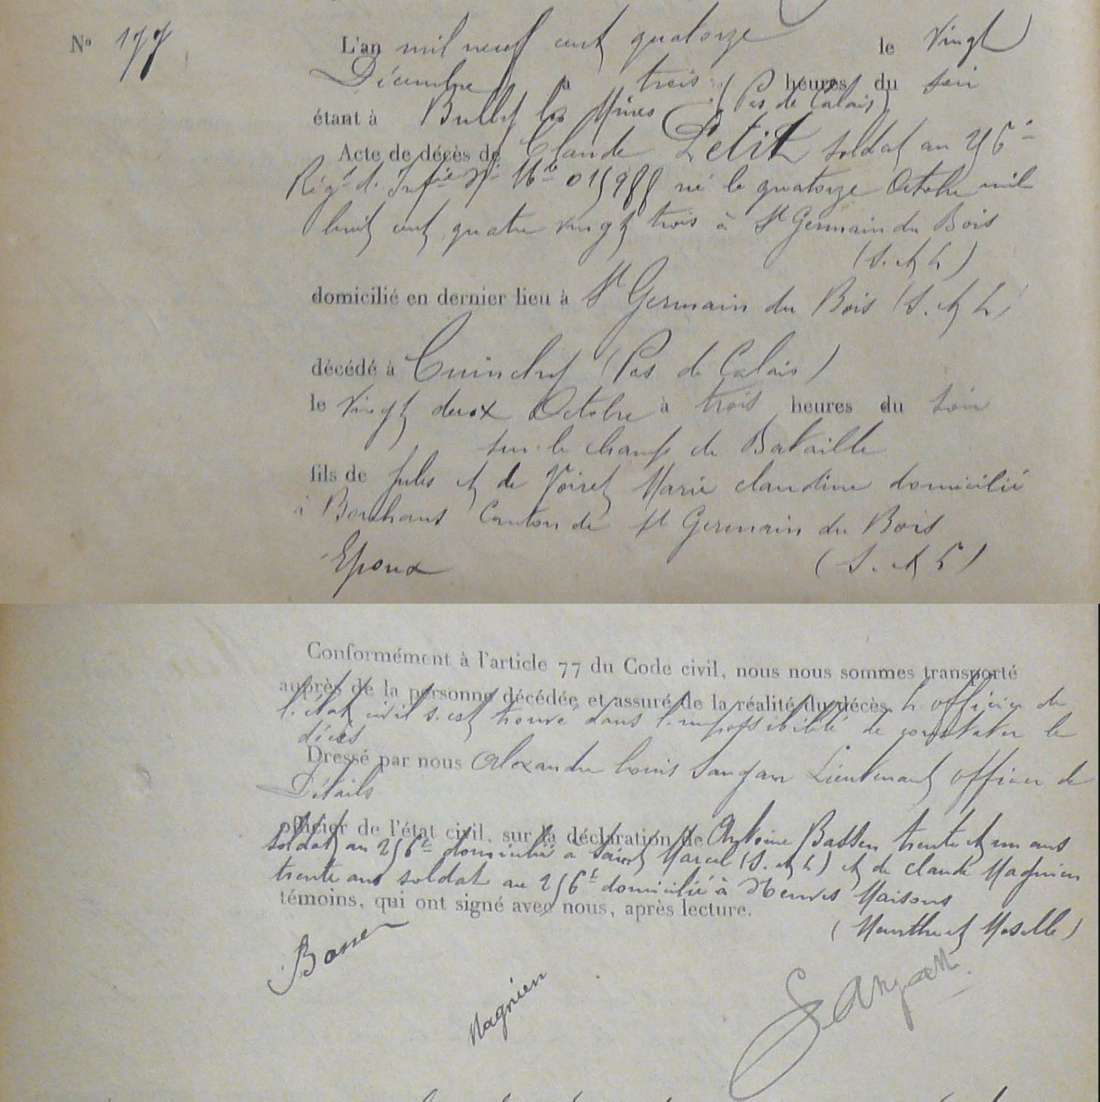 N° 177
L'an mil neuf cent quatorze le vingt
Décembre à trois heures du soir
étant à Bully les Mines (Pas de Calais)
Acte de décès de Claude Petit soldat au 256e
Régt d'Infie Mle né le quatorze Octobre mil
huit cent quatre vingt trois à St Germain du Bois
(S. et L)
domicilié en dernier lieu à St Germain du Bois (S. et L)
décédé à Cuinchy (Pas de Calais)
le vingt deux Octobre à trois heures du soir
sur le champ de Bataille
fils de Jules et de Voiret Marie claudine domicilié
à Bouhans Canton de St Germain du Bois
Epoux (S. et L)
Conformément à l'article 77 du Code civil, nous nous sommes transporté
auprès de la personne décédée et assuré de la réalité du décès. L'officier de
l'état civil s'est trouvé dans l'impossibilité de constater le
décès
Dressé par nous Alexandre Louis Sanjan Lieutenant officier de
Détails
officier de l'état civil, sur la déclaration de Antoine trente et un ans
soldat au 256e domicilié à Saint Marcel (S. et L) et de claude Magnien
trente ans soldat au 256e domicilié à Neuves Maisons
témoins, qui ont signé avec nous, après lecture.
(Meurthe et Moselle)
Magnien